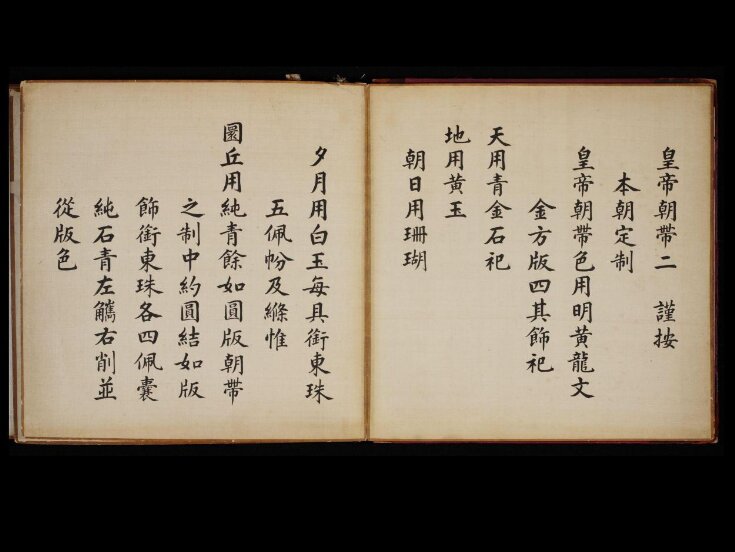 皇帝朝帶二　謹按
本朝定制
皇帝朝帶色用明黃龍文
金方版四其飾祀
天用青金石祀
地用黃玉
朝日用珊瑚
夕月用白玉每具銜東珠
五佩帉及縧惟
圜丘用純青餘如圓版朝帶
之制中約圓結如版
飾銜東珠各四佩囊
純石青左觿右削並
從版色